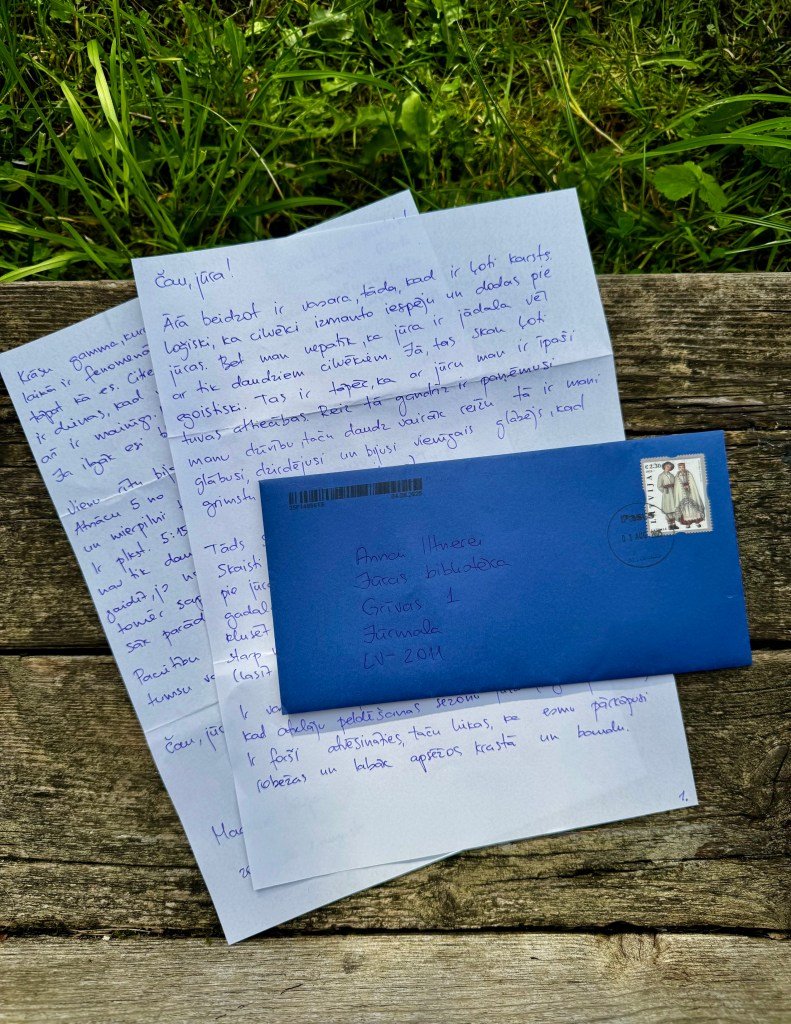 Čau, jūra!
Ārā beidzot ir vasara, tāda, kad ir ļoti karsts.
Loģiski, ka cilvēki izmanto iespēju un dodas pie
jūras. Bet man nepatīk, ka jūra ir jādala vēl
ar tik daudziem cilvēkiem. Jā, tas skan ļoti
egoistiski. Tas ir tāpēc, ka ar jūru man ir īpaši
tuvas attiecības. Reiz tā gandrīz ir paņēmusi
manu dzīvību, taču daudz vairāk reižu tā ir mani
glābusi, dzirdējusi un bijusi vienīgais glābējs, kad
grimstu
Tāds
Skaisti
pie jūra
gadal
klusēt
starp
(lasīt
Ir va
kad atklāju peldēšanas sezonu
Ir forši atvēsināties, taču liekas, ka esmu pārkāpusi
robežas un labāk apsēžos krastā un baudu.
1.
Krāsu gamma, kura
laikā ir fenomenā
tāpat kā es.
ir dienas, kad
arī ir mainīgi.
Ja ilgāk esi
Vienu rītu bij
Atnācu 5 no
un mierpilni
Ir plkst. 5:15
nav tik dau
gaidīt, jo
tomēr sag
sāk parād
Pacietību
tumsu va
Čau, jūr
Mad
€2.30
LATVIJA
04.08.2025
Annai Iltnerei
Jūras bibliotēka
Grīvas 1
Jūrmala
LV-2011